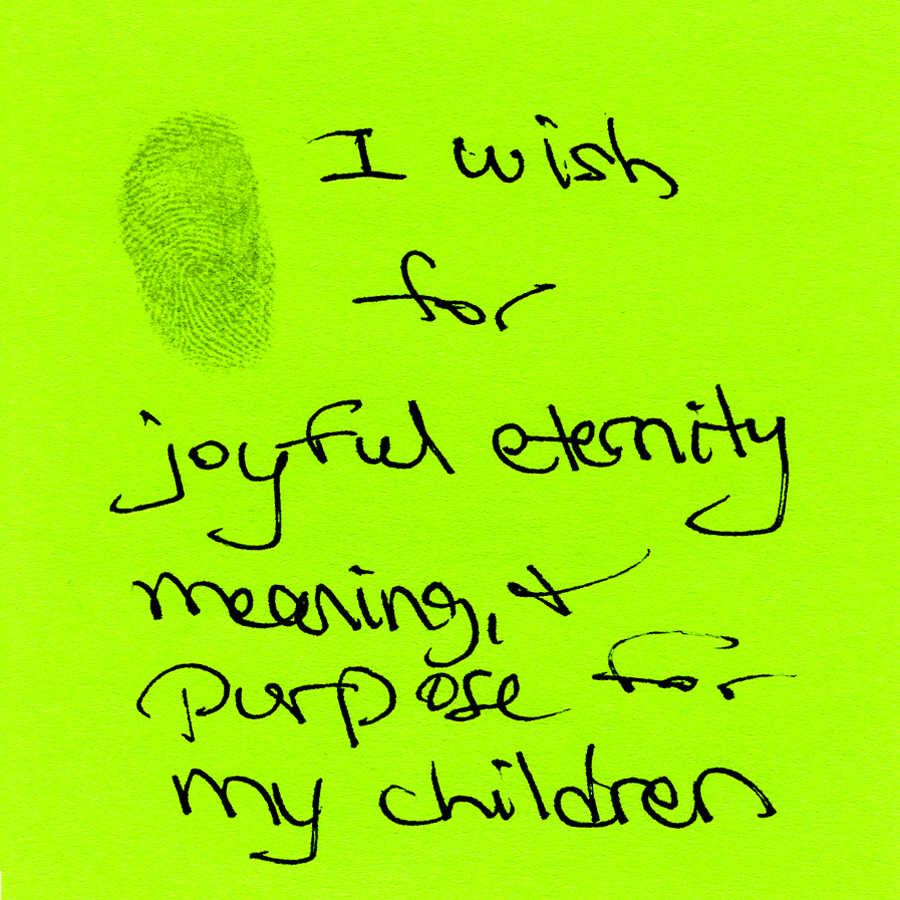 I wish
for
joyful eternity
meaning, &
purpose for
my children